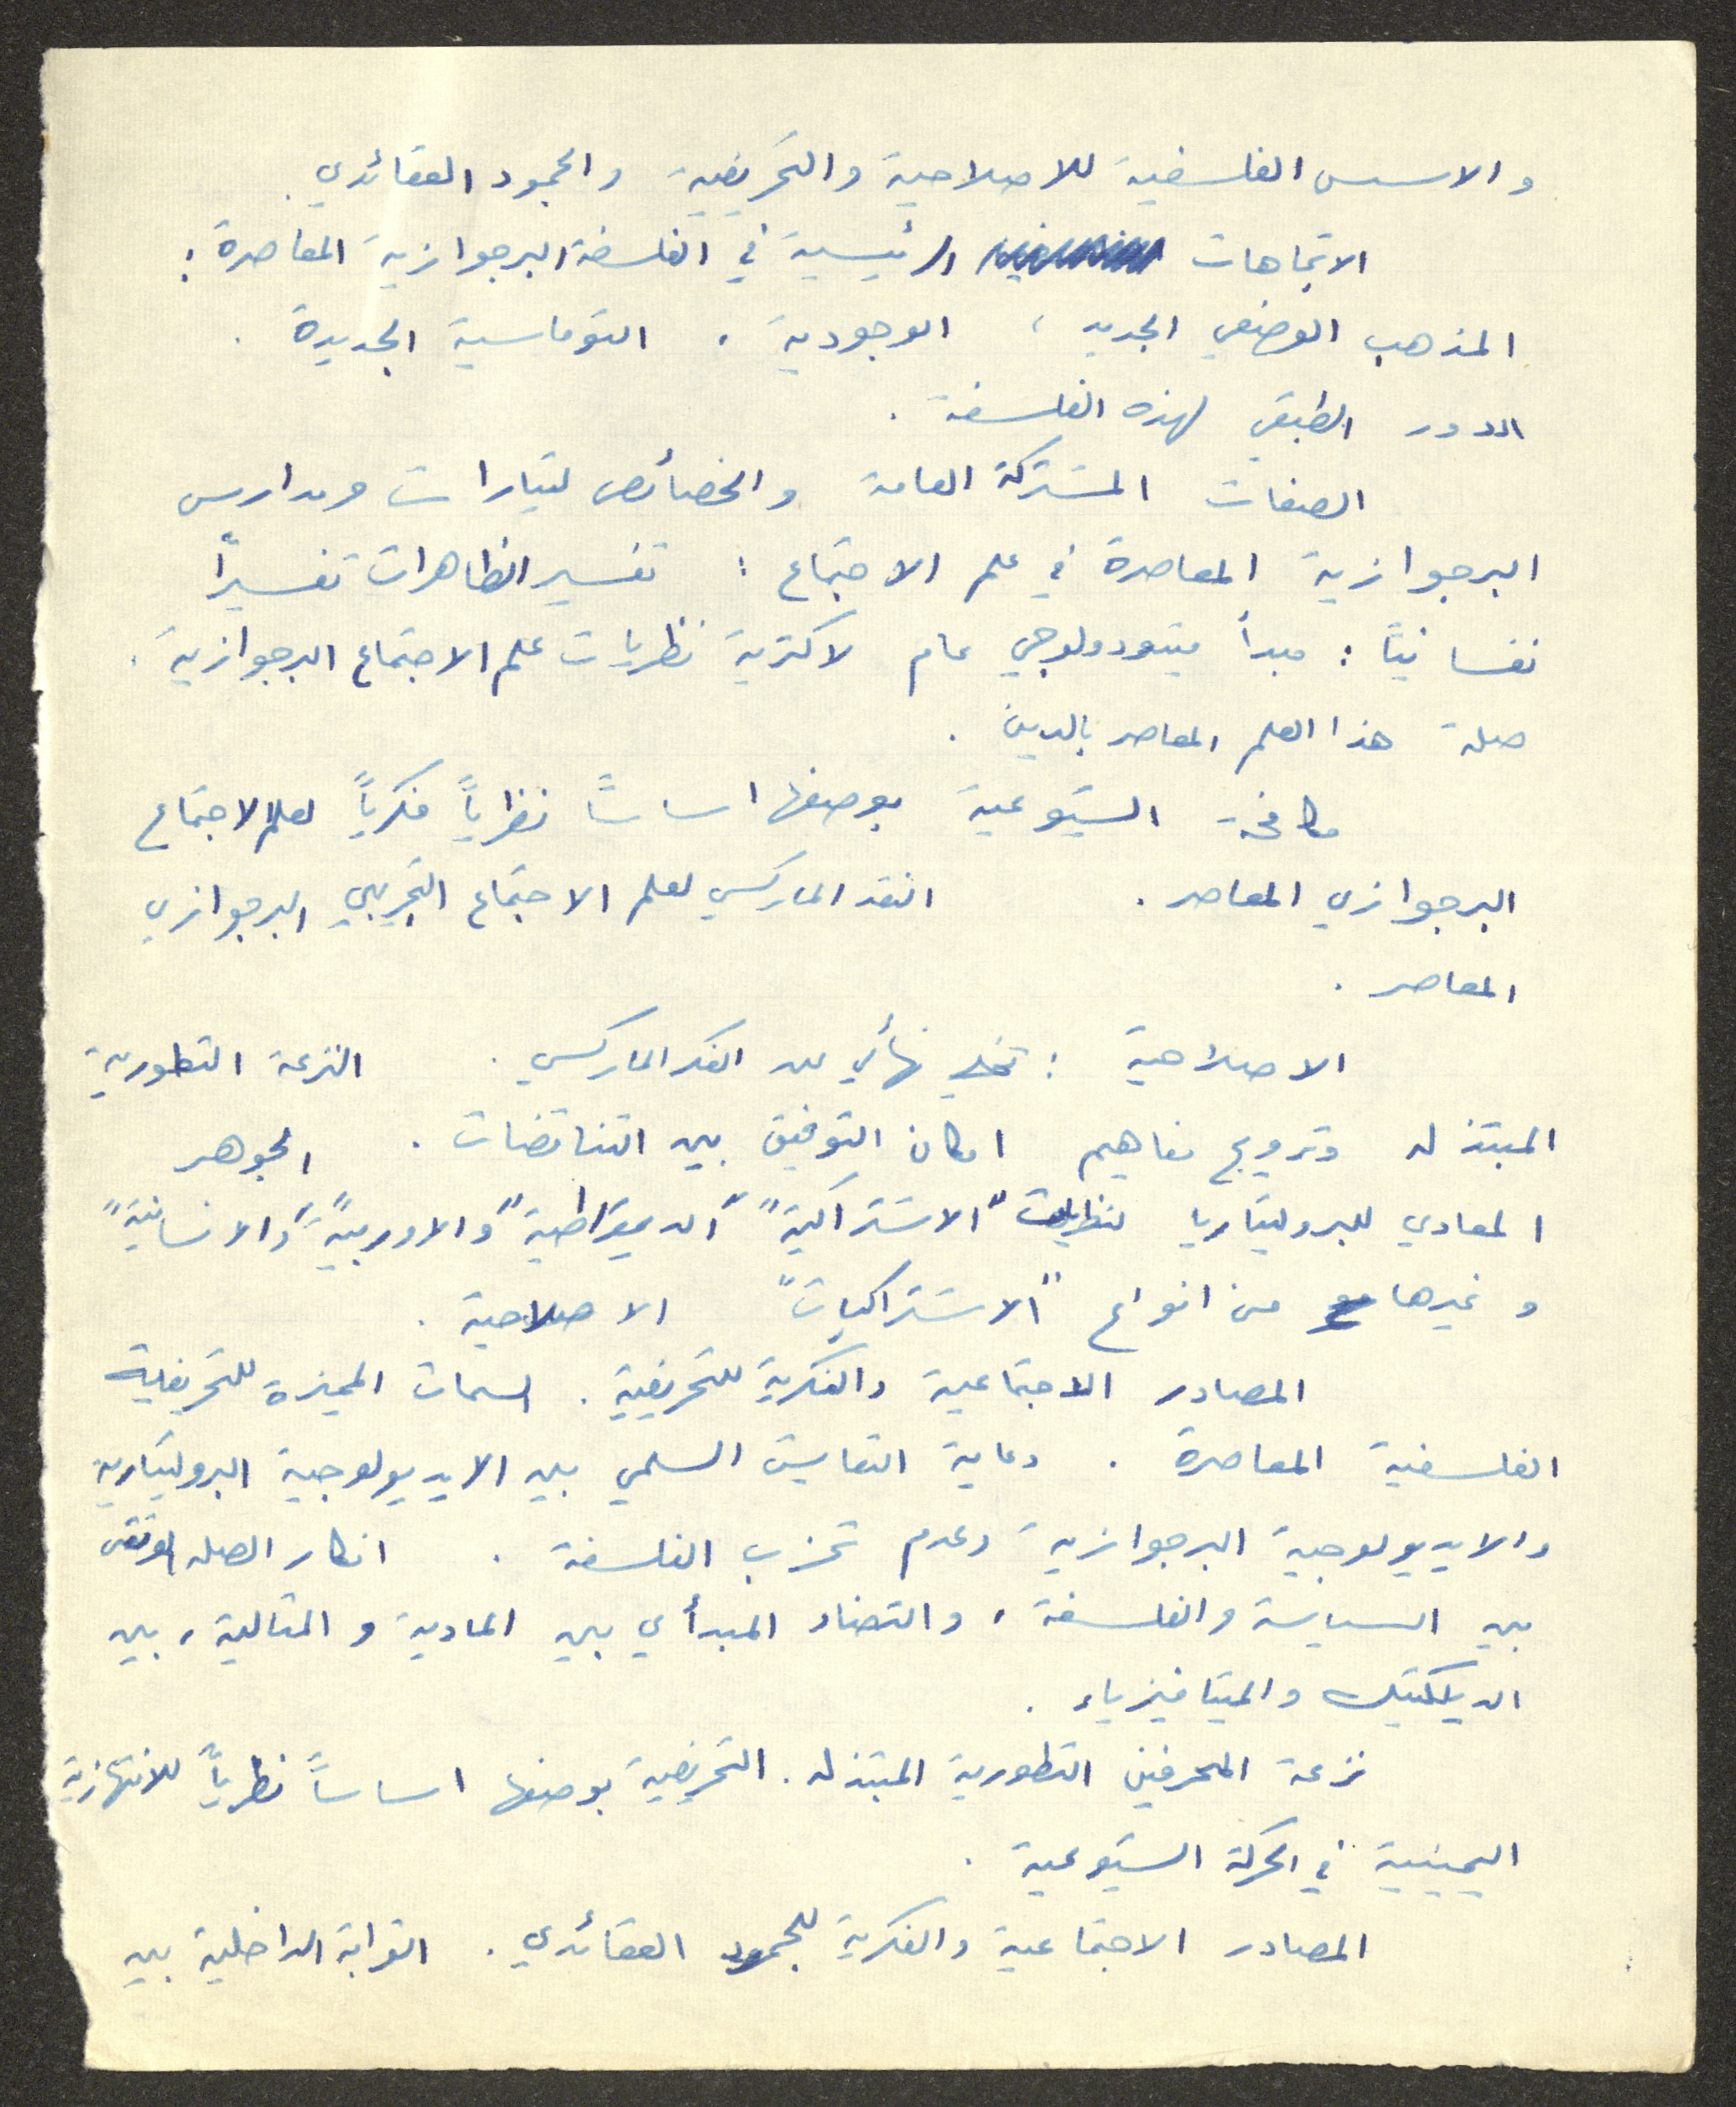 والاسس الفلسفية للاصلاحية والتحريفية والجمود العقائدي.
الاتجاهات الرئيسية في الفلسفة البرجوازية المعاصرة :
المذهب الوضعي الجديد ، الوجودية ، التوماسية الجديدة .
الدور الطبقي لهذه الفلسفة .
الصفات المشتركة العامة والخصائص لتيارات ومدارس
البرجوازية المعاصرة في علم الاجتماع : تفسير الظاهرات تفسيراً
نفسانياً : مبدأ ميتودولوجي عام لاكثرية نظريات علم الاجتماع البرجوازية .
صلة هذا العلم المعاصر بالدين .
مكافحة الشيوعية بوصفها اساساً نظرياً فكرياً لعلم الاجتماع
البرجوازي المعاصر . النقد الماركسي لعلم الاجتماع التجريبي البرجوازي
المعاصر .
الاصلاحية : تخلي نهائي عن الفكر الماركسي . النزعة التطورية
المبتذلة وترويج مفاهيم امكان التوفيق بين التناقضات . الجوهر
المعادي للبروليتاريا لنظريات "الاشتراكية" "الديمقراطية" و"الاوربية" و"الانسانية"
وغيرها من انواع "الاشتراكيات" الاصلاحية .
المصادر الاجتماعية والفكرية للتحريفية . السمات المميزة للتحريفية
الفلسفية المعاصرة . دعاية التعايش السلمي بين الايديولوجية البروليتارية
والايديولوجية البرجوازية وعدم تحزب الفلسفة . انكار الصلة الوثقى
بين السياسة والفلسفة ، والتضاد المبدأي بين المادية والمثالية ، بين
الديلكتيك والميتافيزياء .
نزعة المحرفين التطورية المبتذلة . التحريفية بوصفها اساساً نظرياً للانتهازية
اليمينية في الحركة الشيوعية .
المصادر الاجتماعية والفكرية للجمود العقائدي . القرابة الداخلية بين